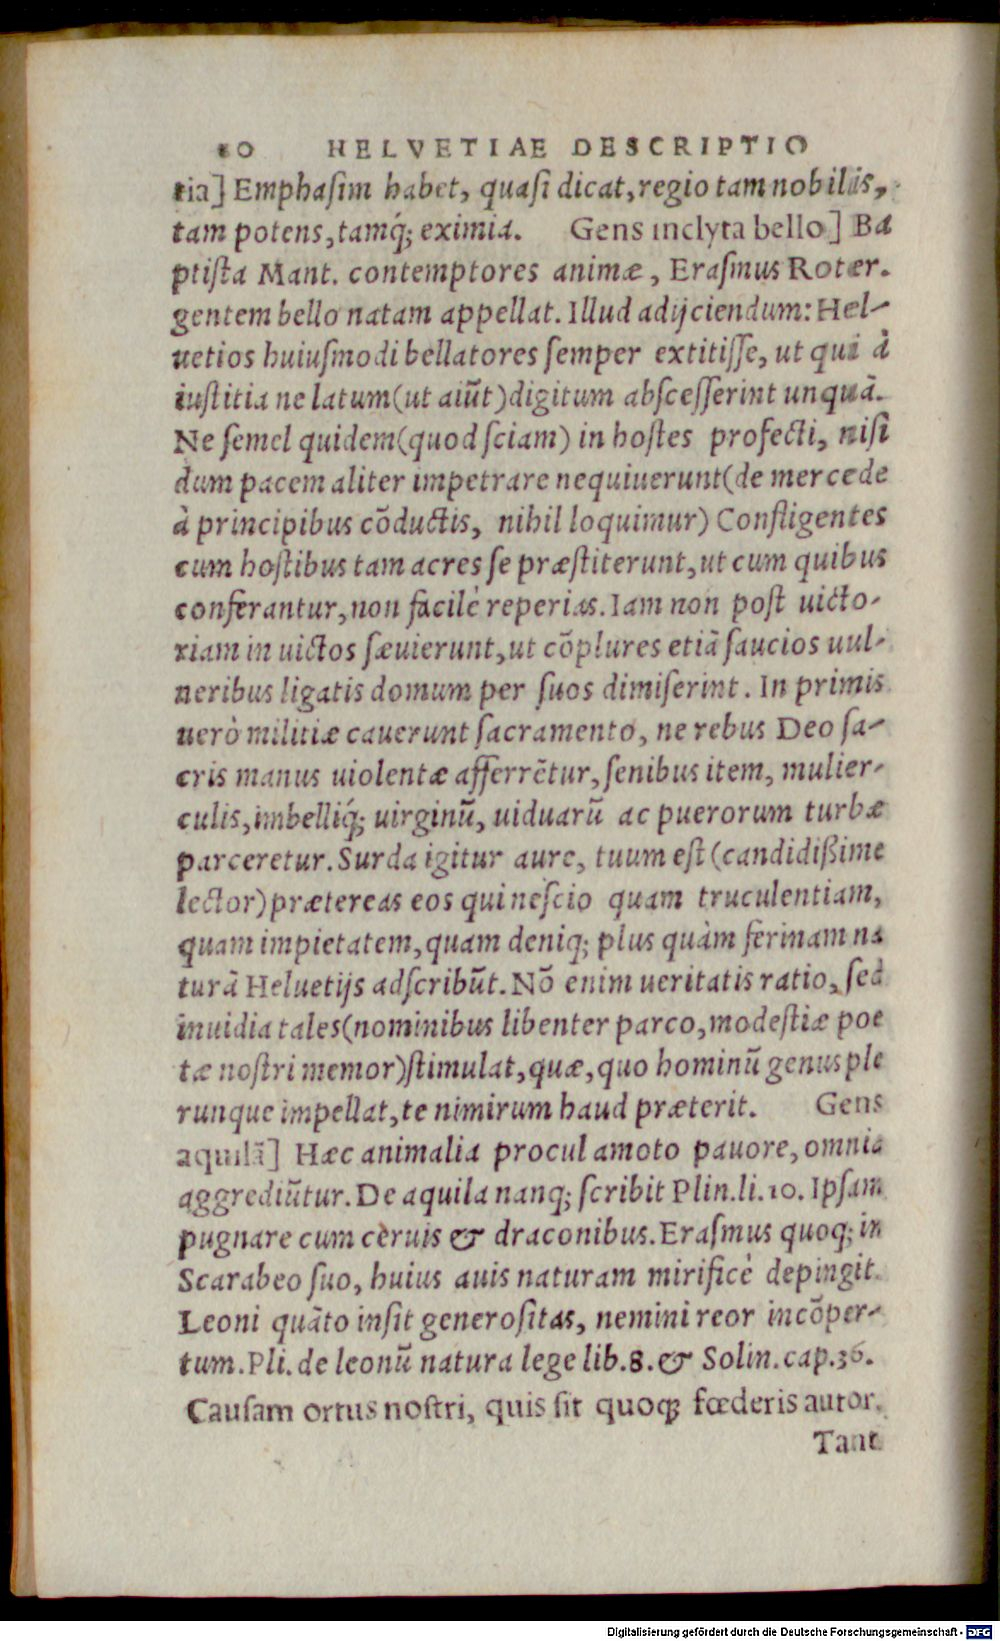 10 HELVETIAE DESCRIPTIO
tia] Emphaſim habet, quaſi dicat, regio tam nobilis,
tam potens, tamq́; eximia. Gens inclyta bello] Ba
ptiſta Mant. contemptores animæ, Eraſmus Roter.
gentem bello natam appellat. Illud adijciendum: Hel-
uetios huiuſmodi bellatores ſemper extitiſſe, ut qui à
iuſtitia ne latum (ut aiūt) digitum abſceſſerint unquā.
Ne ſemel quidem (quod ſciam) in hoſtes profecti, niſi
dum pacem aliter impetrare nequiuerunt (de mercede
à principibus cōductis, nihil loquimur) Confligentes
cum hoſtibus tam acres ſe præſtiterunt, ut cum quibus
conferantur, non facilè reperias. Iam non poſt uicto-
riam in uictos ſæuierunt, ut cōplures etiā ſaucios uul-
neribus ligatis domum per ſuos dimiſerint. In primis
uerò militiæ cauerunt ſacramento, ne rebus Deo ſa-
cris manus uiolentæ afferrētur, ſenibus item, mulier-
culis, imbelliq́; uirginū, uiduarū ac puerorum turbæ
parceretur. Surda igitur aure, tuum eſt (candidißime
lector) prætereas eos qui neſcio quam truculentiam,
quam impietatem, quam deniq; plus quàm ferinam na
turā Heluetijs adſcribūt. Nō enim ueritatis ratio, ſed
inuidia tales (nominibus libenter parco, modeſtiæ poe
tæ noſtri memor) ſtimulat, quæ, quo hominū genus ple
runque impellat, te nimirum haud præterit. Gens
aquilā] Hæc animalia procul amoto pauore, omnia
aggrediūtur. De aquila nanq; ſcribit Plin. li. 10. Ipſam
pugnare cum ceruis & draconibus. Eraſmus quoq; in
Scarabeo ſuo, huius auis naturam mirificè depingit.
Leoni quāto inſit generoſitas, nemini reor incōper-
tum. Pli. de leonū natura lege lib. 8. & Solin. cap. 36.
Cauſam ortus noſtri, quis ſit quoq; fœderis autor.
Tant
Digitalisierung gefördert durch die Deutsche Forschungsgemeinschaft - DFG